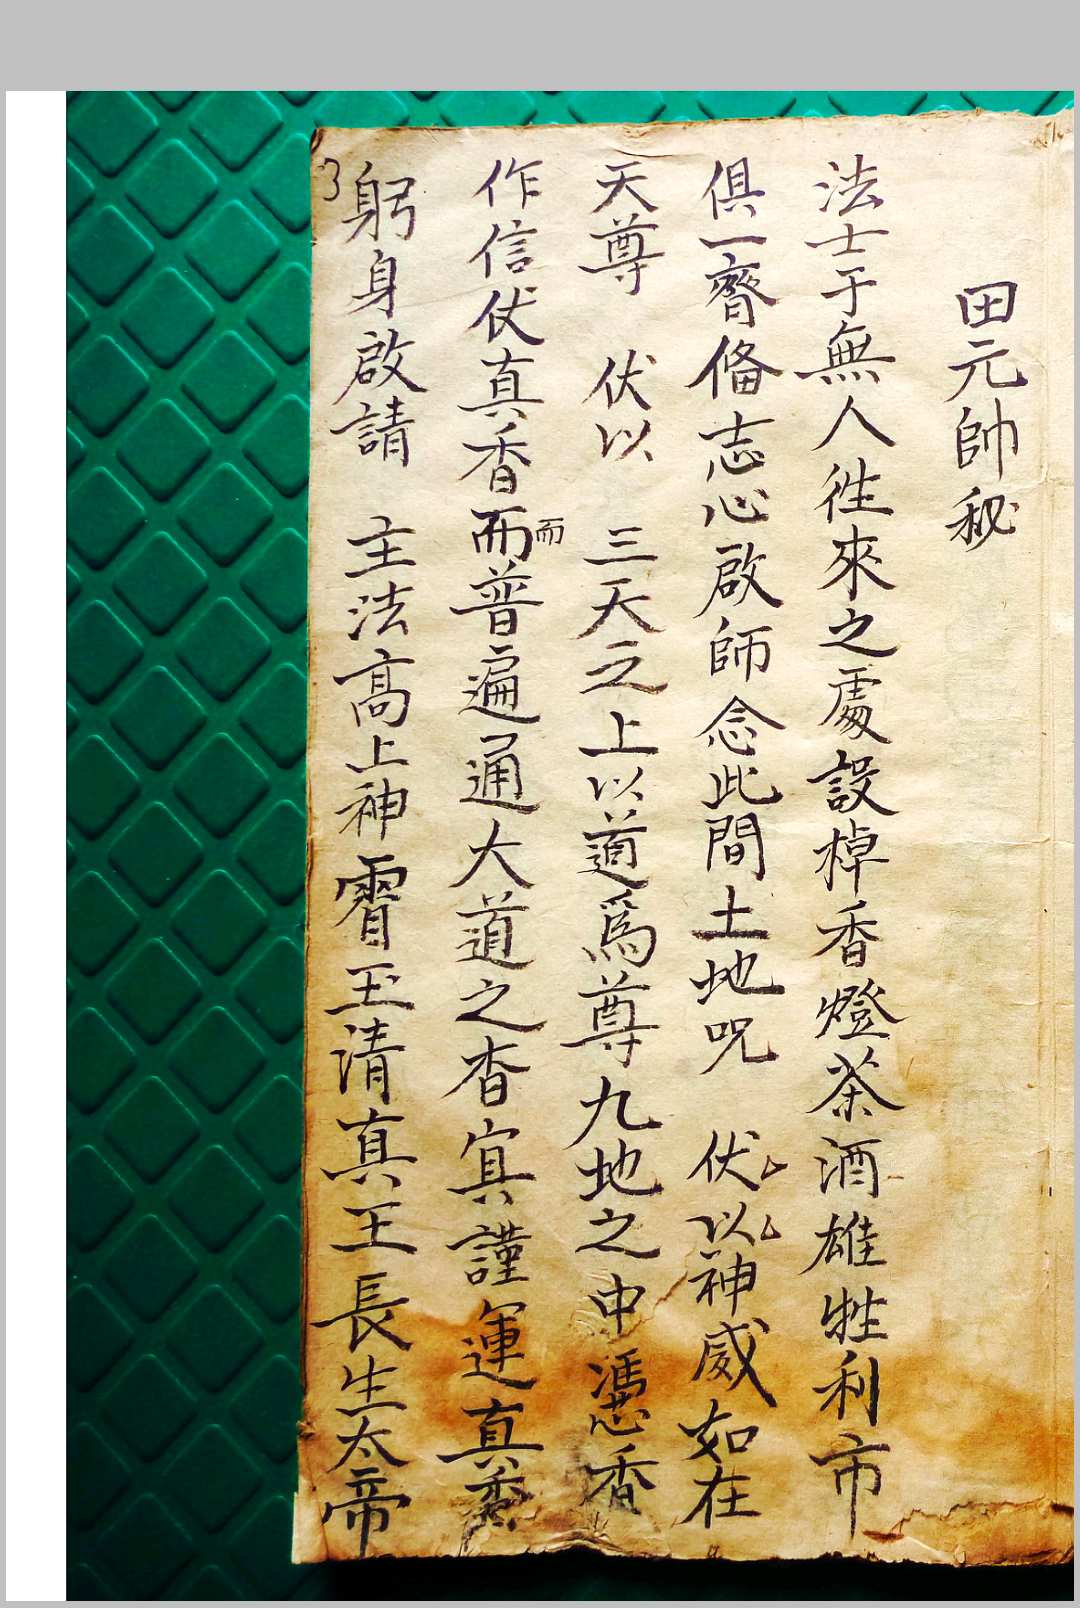 田元帥秘
法士于無人徃來之處設棹香燈茶酒雄牲利市
俱一齊俻志心啟師念此間土地咒 伏以神威如在
天尊 伏以 三天之上以道爲尊九地之中馮心香
作信伏真香而而普遍通大道之杳寘謹運真香
躬身啟請 主法高上神霄玉清真王長生大帝